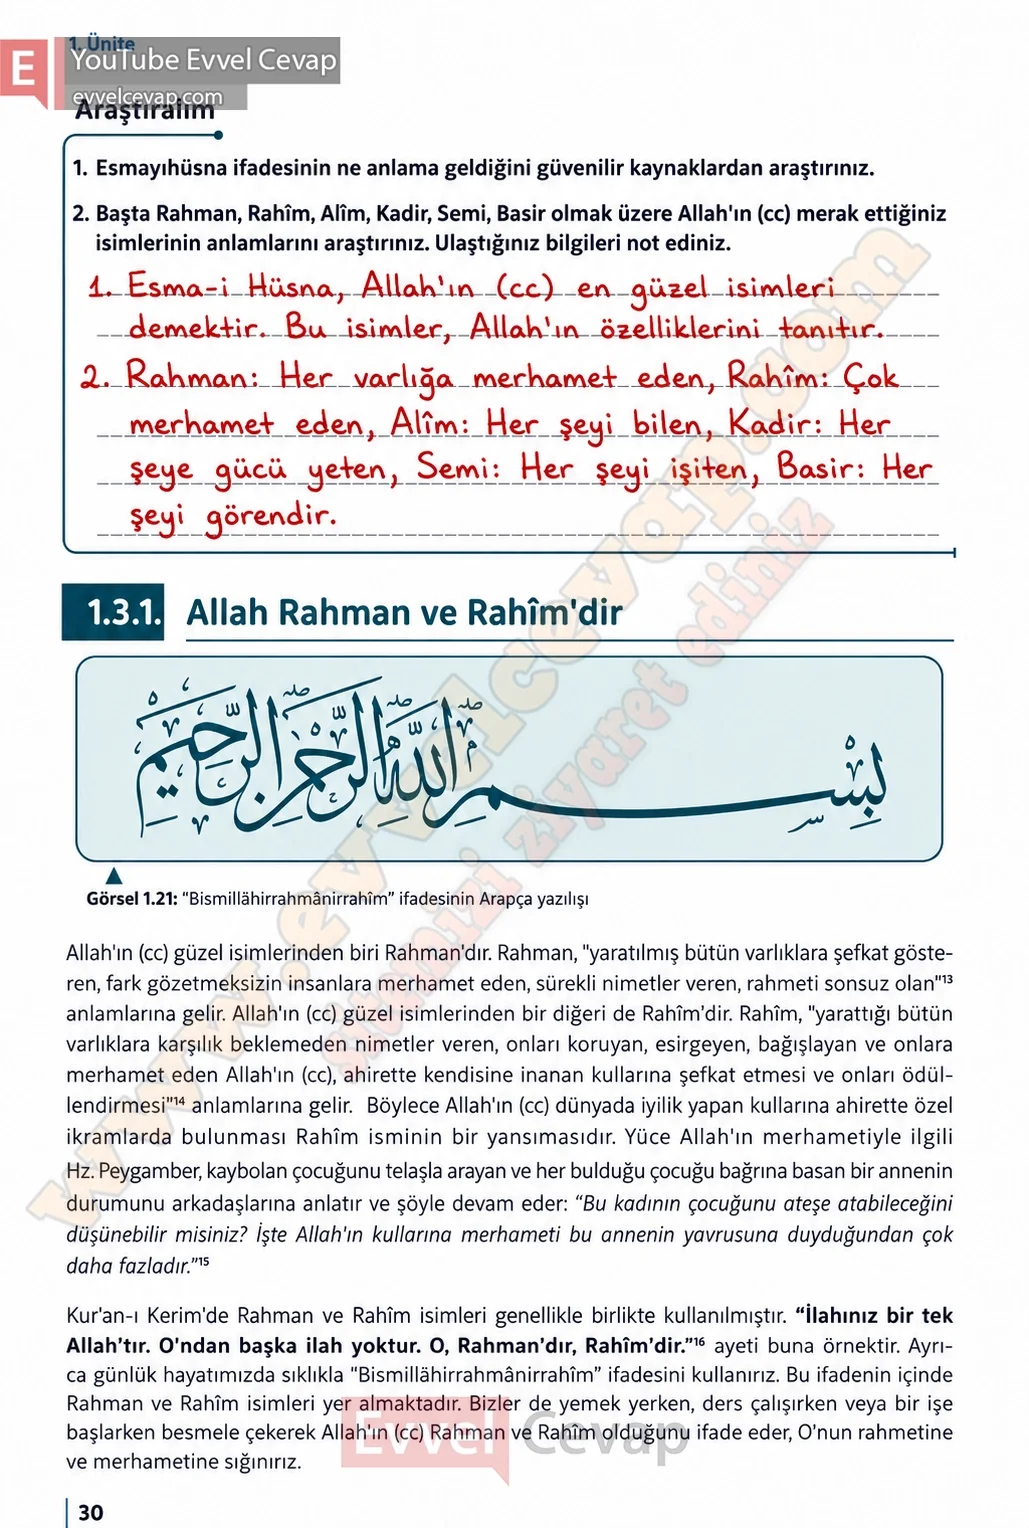 1. Ünite
E
YouTube Evvel Cevap
evvelcevap.com
Araştıralım
1. Esmayıhüsna ifadesinin ne anlama geldiğini güvenilir kaynaklardan araştırınız.
2. Başta Rahman, Rahîm, Alîm, Kadir, Semi, Basir olmak üzere Allah'ın (cc) merak ettiğiniz
isimlerinin anlamlarını araştırınız. Ulaştığınız bilgileri not ediniz.
1. Esma-i Hüsna, Allah'ın (cc) en güzel isimleri
demektir. Bu isimler, Allah'ın özelliklerini tanıtır.
2. Rahman: Her varlığa merhamet eden, Rahîm: Çok
merhamet eden, Alîm: Her şeyi bilen, Kadir: Her
şeye gücü yeten, Semi: Her şeyi işiten, Basir: Her
şeyi görendir.
1.3.1. Allah Rahman ve Rahîm'dir
بِسْمِ اللّٰهِ الرَّحْمٰنِ الرَّحِيمِ
Görsel 1.21: “Bismillâhirrahmânirrahîm” ifadesinin Arapça yazılışı
Allah'ın (cc) güzel isimlerinden biri Rahman'dır. Rahman, "yaratılmış bütün varlıklara şefkat göste-
ren, fark gözetmeksizin insanlara merhamet eden, sürekli nimetler veren, rahmeti sonsuz olan"13
anlamlarına gelir. Allah'ın (cc) güzel isimlerinden bir diğeri de Rahîm’dir. Rahîm, "yarattığı bütün
varlıklara karşılık beklemeden nimetler veren, onları koruyan, esirgeyen, bağışlayan ve onlara
merhamet eden Allah'ın (cc), ahirette kendisine inanan kullarına şefkat etmesi ve onları ödül-
lendirmesi"14 anlamlarına gelir. Böylece Allah'ın (cc) dünyada iyilik yapan kullarına ahirette özel
ikramlarda bulunması Rahîm isminin bir yansımasıdır. Yüce Allah'ın merhametiyle ilgili
Hz. Peygamber, kaybolan çocuğunu telaşla arayan ve her bulduğu çocuğu bağrına basan bir annenin
durumunu arkadaşlarına anlatır ve şöyle devam eder: “Bu kadının çocuğunu ateşe atabileceğini
düşünebilir misiniz? İşte Allah'ın kullarına merhameti bu annenin yavrusuna duyduğundan çok
daha fazladır.”15
Kur'an-ı Kerim'de Rahman ve Rahîm isimleri genellikle birlikte kullanılmıştır. “İlahınız bir tek
Allah’tır. O'ndan başka ilah yoktur. O, Rahman’dır, Rahîm’dir.”16 ayeti buna örnektir. Ayrı-
ca günlük hayatımızda sıklıkla “Bismillâhirrahmânirrahîm” ifadesini kullanırız. Bu ifadenin içinde
Rahman ve Rahîm isimleri yer almaktadır. Bizler de yemek yerken, ders çalışırken veya bir işe
başlarken besmele çekerek Allah'ın (cc) Rahman ve Rahîm olduğunu ifade eder, O’nun rahmetine
ve merhametine sığınırız.
30
www.evvelcevap.com
sitemizi ziyaret ediniz
Evvel Cevap